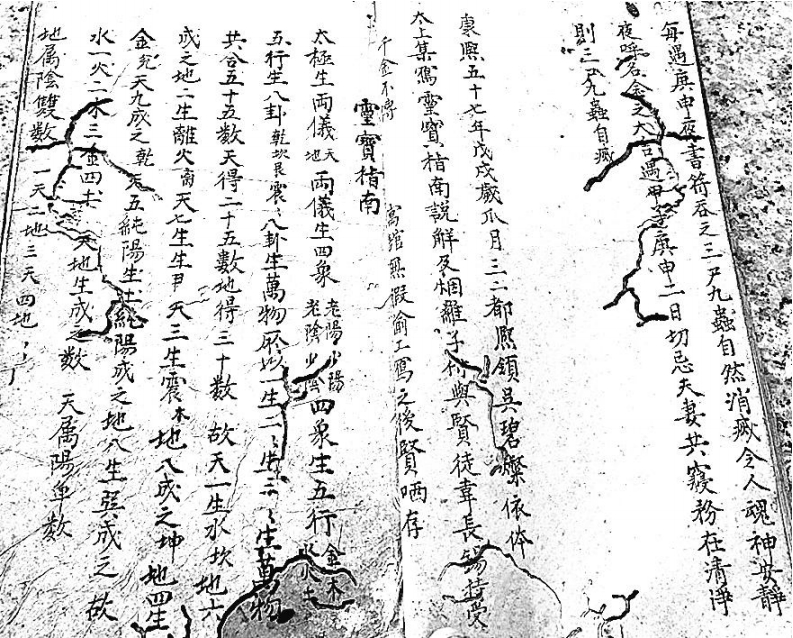 每遇庚申夜書符吞之三尸九蟲自然消滅令人魂神安靜
夜呼名金之大吉遇甲子庚申二日切忌夫妻共寢務在清淨
則三尸九蟲自滅
康熙五十七年戊戌歲瓜月三二都熙領吳碧燦依体
太上集寫靈寶指南説解及烟離子付與賢徒韋長錫持受
千金不傳 寫雖無假偷工寫之後賢哂存
靈寶指南
太極生両儀天地両儀生四象老陽少陽老陰少陰四象生五行金木水火土
五行生八卦乾坎艮震〻八卦生萬物所以一生二〻生三〻生萬物
共合五十五数天得二十五数地得三十数 故天一生水坎地六
成之地二生離火南天七生生尹天三生震木地八成之坤 地四生
金兊天九成之乾 天五純陽生土純陽成之地八生巽成之 故
水一火二木三金四土 天地生成之数 天属陽单数
地属陰雙数 一天二地三天四地〻〻